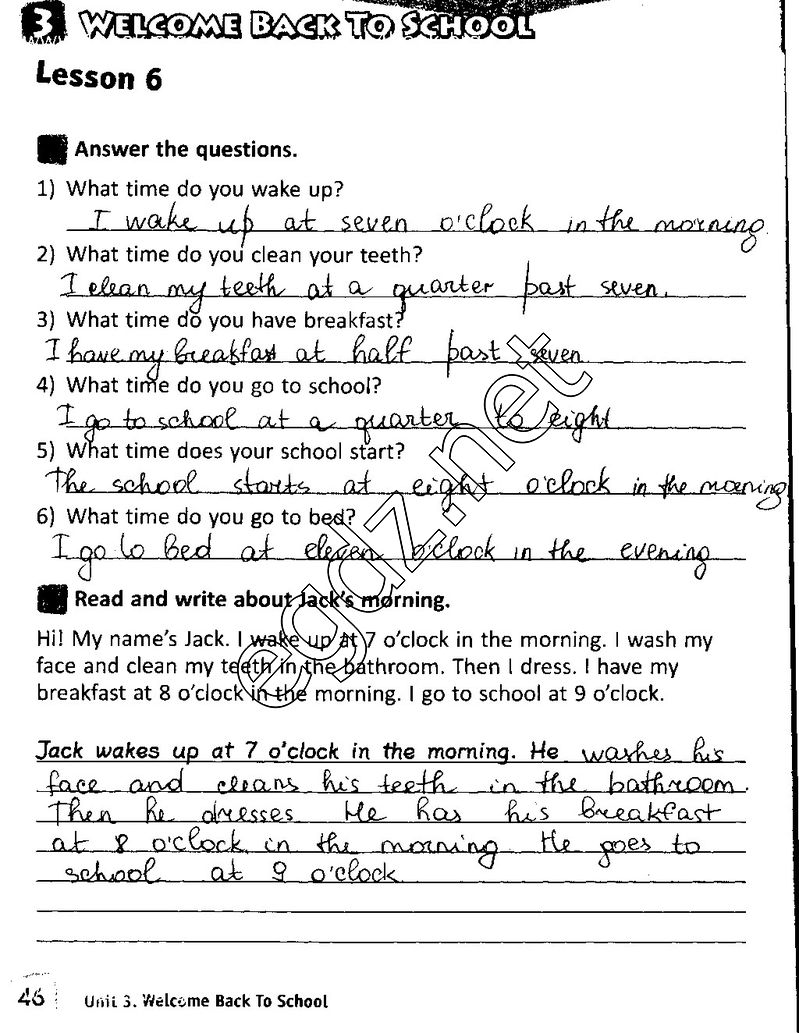 3 WELCOME BACK TO SCHOOL
Lesson 6
Answer the questions.
1) What time do you wake up?
I wake up at seven o'clock in the morning.
2) What time do you clean your teeth?
I clean my teeth at a quarter past seven.
3) What time do you have breakfast?
I have my breakfast at half past seven
4) What time do you go to school?
I go to school at a quarter to eight
5) What time does your school start?
The school starts at eight o'clock in the morning
6) What time do you go to bed?
I go to bed at eleven o'clock in the evening
Read and write about Jack's morning.
Hi! My name's Jack. I wake up at 7 o'clock in the morning. I wash my
face and clean my teeth in the bathroom. Then I dress. I have my
breakfast at 8 o'clock in the morning. I go to school at 9 o'clock.
Jack wakes up at 7 o'clock in the morning. He washes his
face and cleans his teeth in the bathroom.
Then he dresses He has his breakfast
at 8 o'clock in the morning He goes to
school at 9 o'clock
46 Unit 3. Welcome Back To School
egdz.net